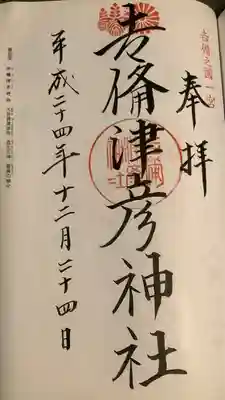 吉備之國一宮
奉拝
吉備津彦神社
平成二十四年十二月二十四日